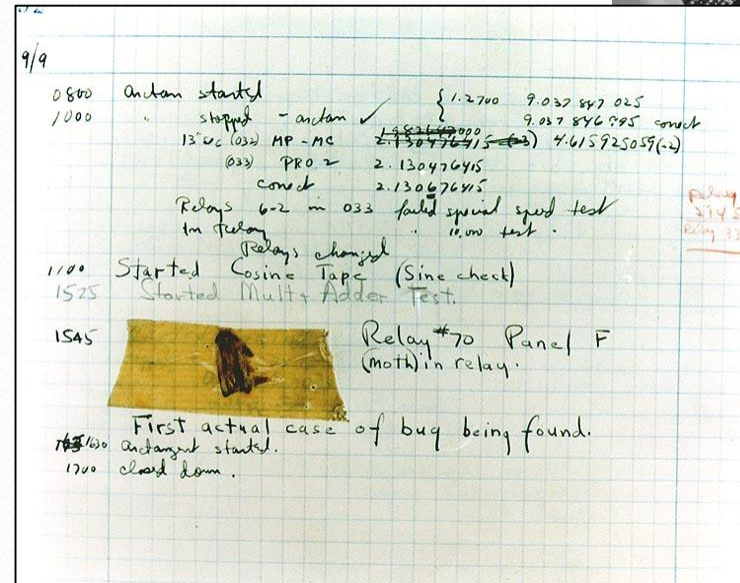 9/9
0800 arctan started { 1.2700 9.037 847 025
1000 " stopped - arctan ✓ 9.037 846 795 correct
13"uc (032) MP - MC 2.130476415 (-3) 4.615925059(-2)
(033) PRO 2 2.130476415
correct 2.130676415
Relays 6-2 in 033 failed special speed test
In relay " 10,000 test.
Relays changed
1100 Started Cosine Tape (Sine check)
1525 Started Mult+Adder Test.
1545 Relay #70 Panel F
(moth) in relay.
First actual case of bug being found.
1630 arctangent started.
1700 closed down.
Relay
Relay 33